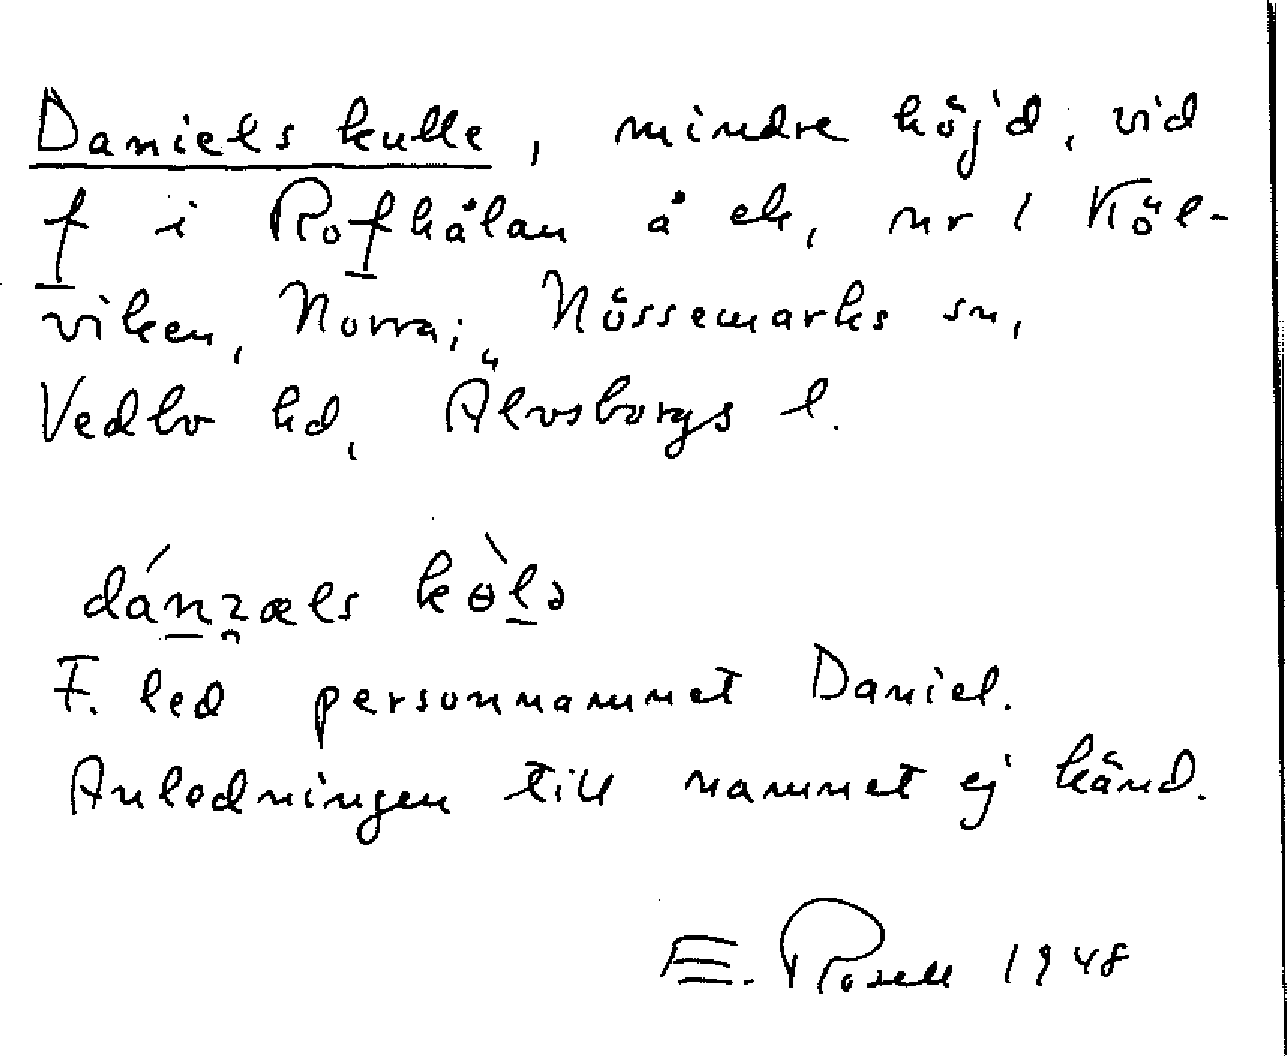 Daniels kulle, mindre höjd, vid
f i Rofhålan å ek, nr 1 Köl-
viken, Norra; Nössemarks sn,
Vedbo hd, Älvsborgs l.
kɵ̀lə
F. led personnamnet Daniel.
Anledningen till namnet ej känd.
E. Rosell 1948